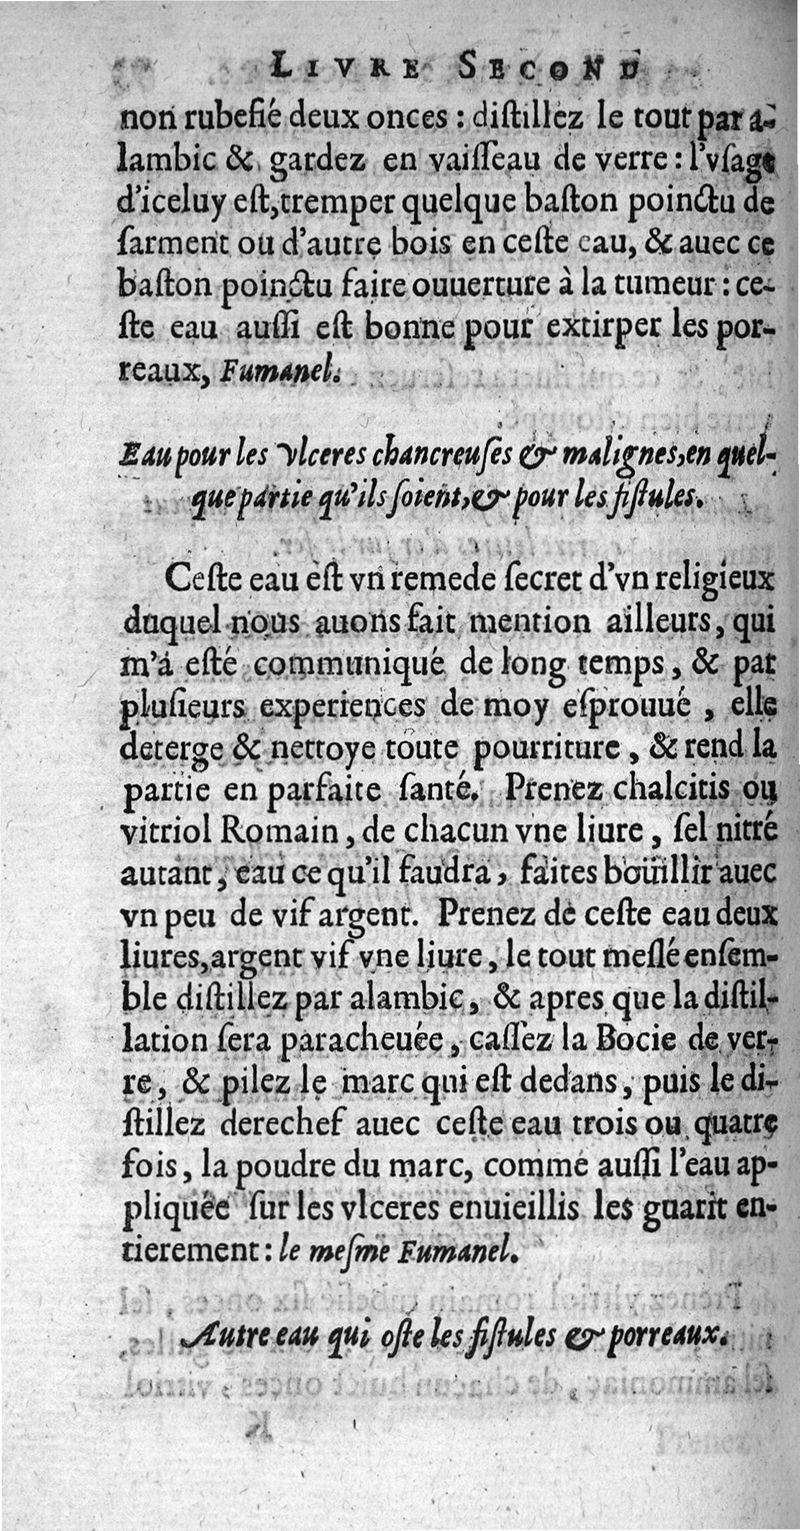 LIVRE SECOND
non rubefié deux onces : distillez le tout par a-
lambic & gardez en vaiſſeau de verre : l'vſage
d'iceluy eſt, tremper quelque baſton poinctu de
ſarment ou d'autre bois en ceſte eau, & auec ce
baſton poinctu faire ouuerture à la tumeur : ce-
ſte eau auſſi eſt bonne pour extirper les por-
reaux, Fumanel.
Eau pour les vlceres chancreuſes & malignes, en quel-
que partie qu'ils ſoient, & pour les fiſtules.
Ceſte eau eſt vn remede ſecret d'vn religieux
duquel nous auons fait mention ailleurs, qui
m'a eſté communiqué de long temps, & par
pluſieurs experiences de moy eſprouué , elle
deterge & nettoye toute pourriture , & rend la
partie en parfaite ſanté. Prenez chalcitis ou
vitriol Romain , de chacun vne liure , ſel nitré
autant, eau ce qu'il faudra, faites boüillir auec
vn peu de vif argent. Prenez de ceſte eau deux
liures, argent vif vne liure, le tout meſlé enſem-
ble diſtillez par alambic, & apres que la diſtil-
lation ſera paracheuée, caſſez la Bocie de ver-
re, & pilez le marc qui eſt dedans, puis le di-
ſtillez derechef auec ceſte eau trois ou quatre
fois, la poudre du marc, comme auſſi l'eau ap-
pliquée ſur les vlceres enuieillis les guarit en-
tierement : le meſme Fumanel.
Autre eau qui oſte les fiſtules & porreaux.